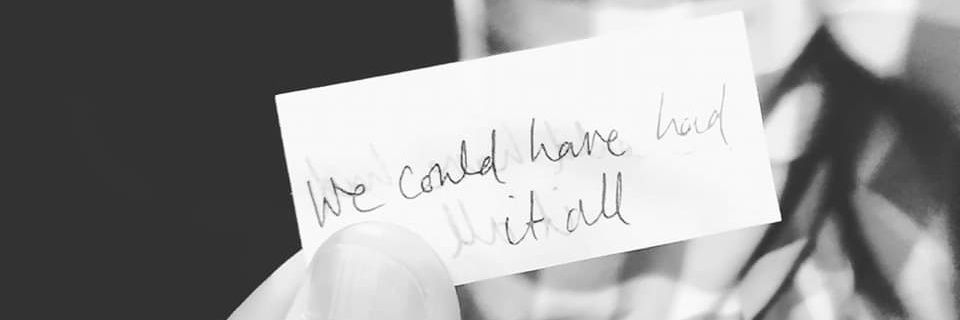 We could have had
it all